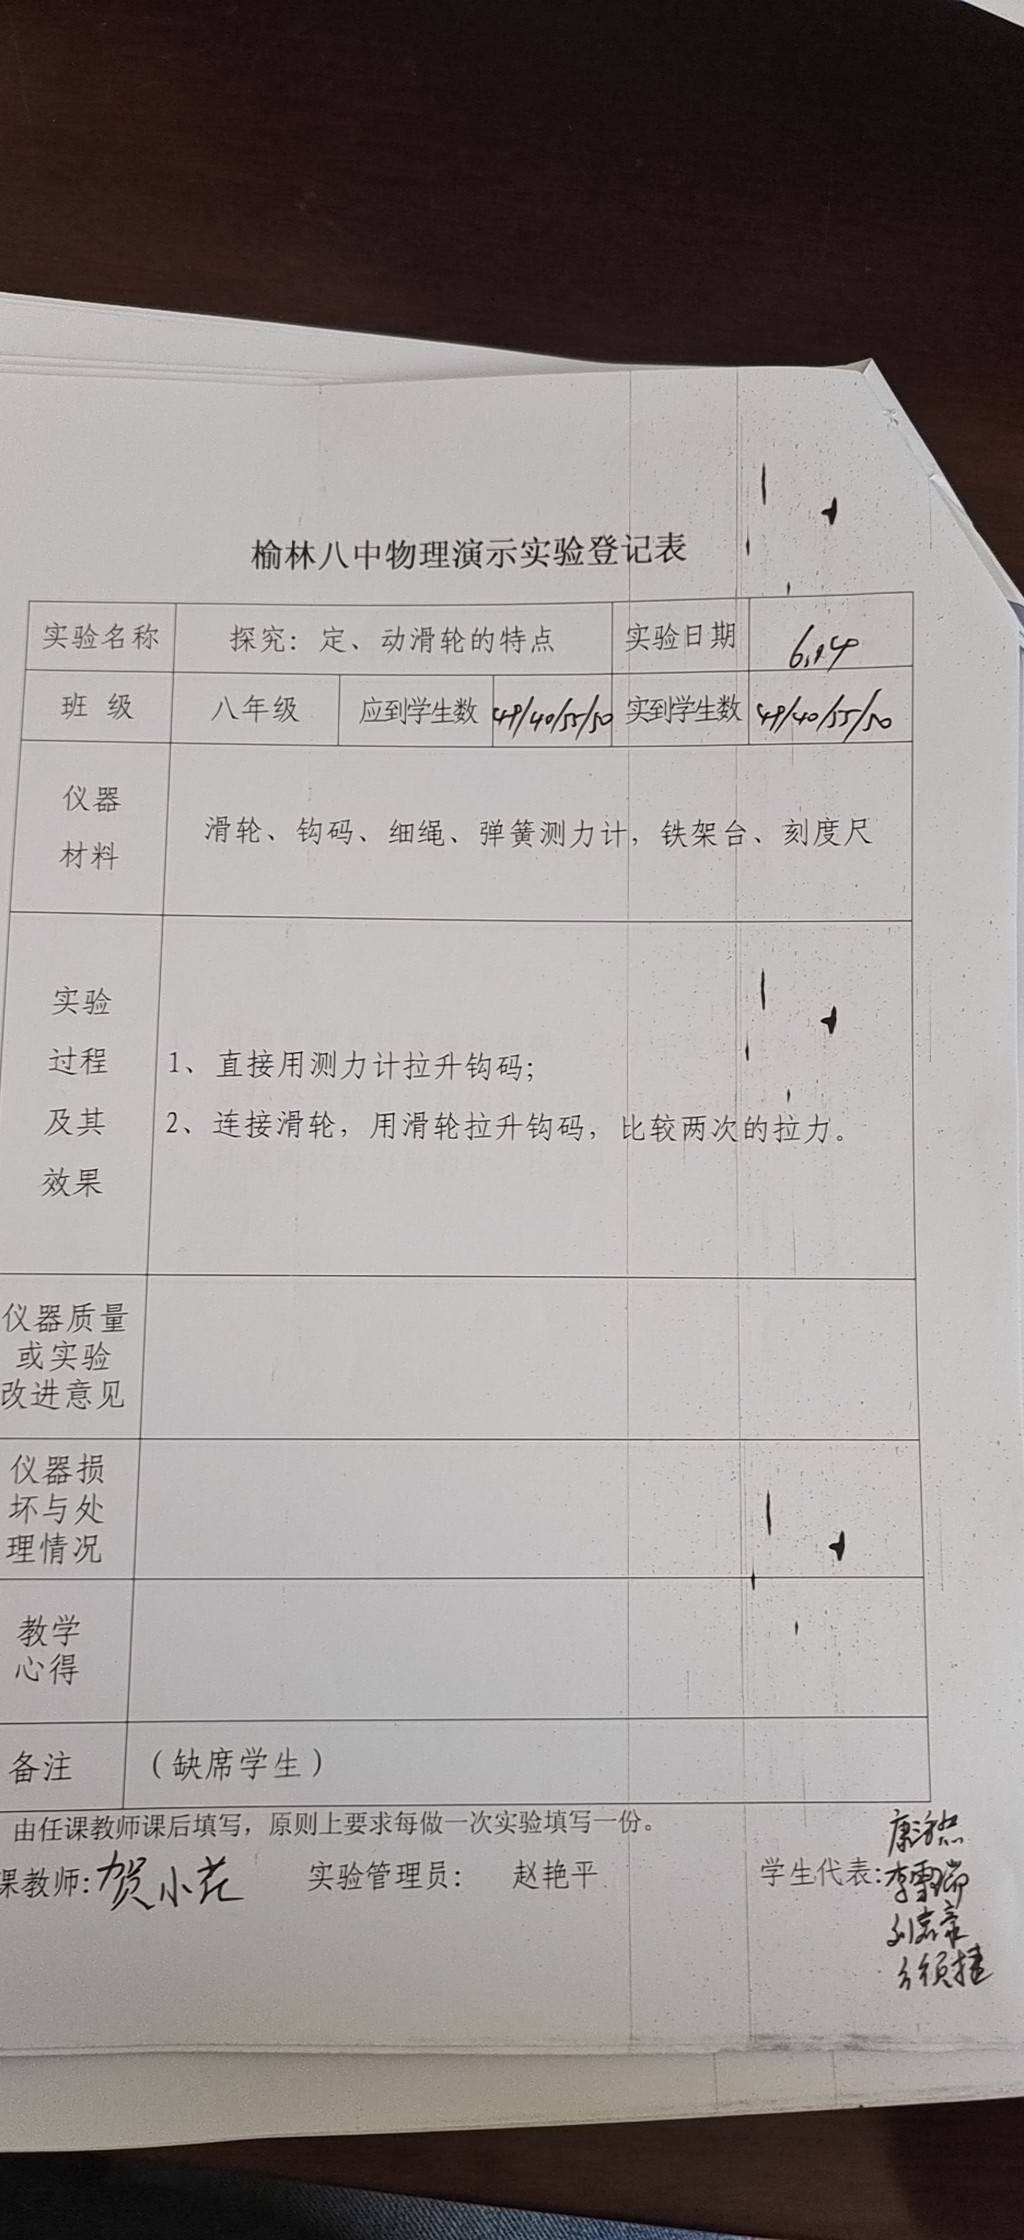 榆林八中物理演示实验登记表
实验名称 探究：定、动滑轮的特点 实验日期 6.14
班 级 八年级 应到学生数 49/40/55/50 实到学生数 49/40/55/50
仪器
材料
滑轮、钩码、细绳、弹簧测力计，铁架台、刻度尺
实验
过程
及其
效果
1、直接用测力计拉升钩码；
2、连接滑轮，用滑轮拉升钩码，比较两次的拉力。
仪器质量
或实验
改进意见
仪器损
坏与处
理情况
教学
心得
备注 （缺席学生）
由任课教师课后填写，原则上要求每做一次实验填写一份。
课教师：贺小花 实验管理员： 赵艳平 学生代表：
李雪瑞